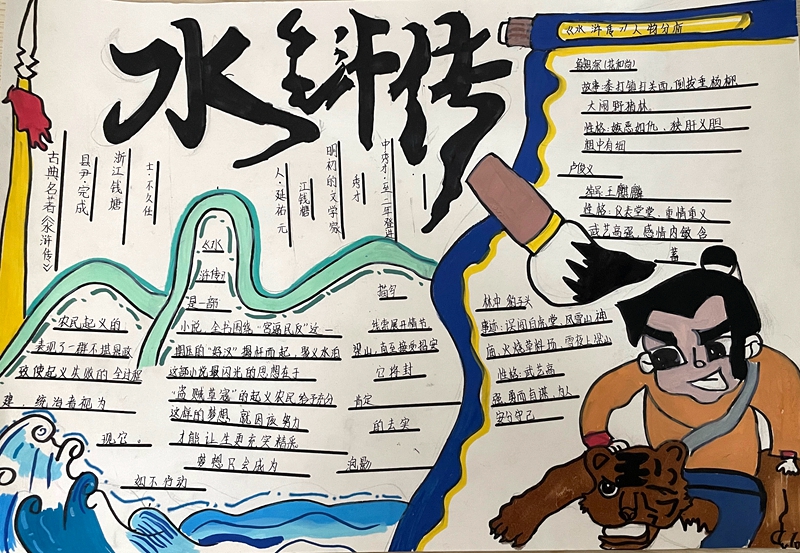 水浒传
《水浒传》人物分析
鲁智深(花和尚)
故事:拳打镇关西,倒拔垂杨柳
大闹野猪林
性格:嫉恶如仇,狭肝义胆
粗中有细
卢俊义
绰号玉麒麟
性格:仪表堂堂,重情重义
武艺高强,感情内敛含
蓄
林冲 豹子头
事迹:误闯白虎堂,风雪山神
庙,火烧草料场,雪夜上梁山
性格:武艺高
强,勇而有谋,为人
安分守己
中秀才·至二年登进
秀才
明初的文学家
江钱塘
人·延祐元
士·不久仕
浙江钱塘
县尹完成
古典名著《水浒传》
《水
浒传》
是一部
描写
农民起义的
小说,全书围绕"官逼民反"这一
表现了一群不堪暴政
梁山,直至接受招安
致使起义失败的全过程
这部小说最闪光的思想在于
它将封
建,统治者视为
"盗贼草寇"的起义农民给予充分
肯定
这样的梦想,就因孩努力
的去实
现它。
才能让生更充实精采
梦想只会成为
泡影
如不行动